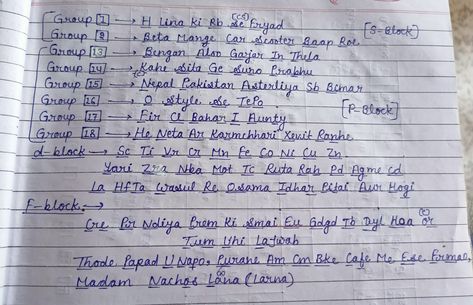 Group 1 → H Lina ki Rb Se Fryad (Cs) [S-Block]
Group 2 → Beta Mange Car Scooter Baap Roe
Group 13 → Bengan Aloo Gajar In Thela
Group 14 → Kahe Sita Ge Suno Prabhu
Group 15 → Nepal Pakistan Asterliya Sb Bimar
Group 16 → O Style Se TePo [P-Block]
Group 17 → Fir Cl Bahar I Aunty
Group 18 → He Neta Ar Karmchhari Xenit Ranhe
d-block → Sc Ti Vr Cr Mn Fe Co Ni Cu Zn
Yari Zra Nba Mot Tc Ruta Rah Pd Agme Cd
La HfTa Wasul Re Osama Idhar Pitai Aur Hogi
F-block →
Cre Pr Ndiya Prem Ki Smai Eu Gdgd Tb Dyl Hoa or
Tum Yhi Lajwab
Thode Papad U Napo, Purane Am Cm Bke Cafe Me Ese Firmao,
Madam Nachos Lana (Larna)